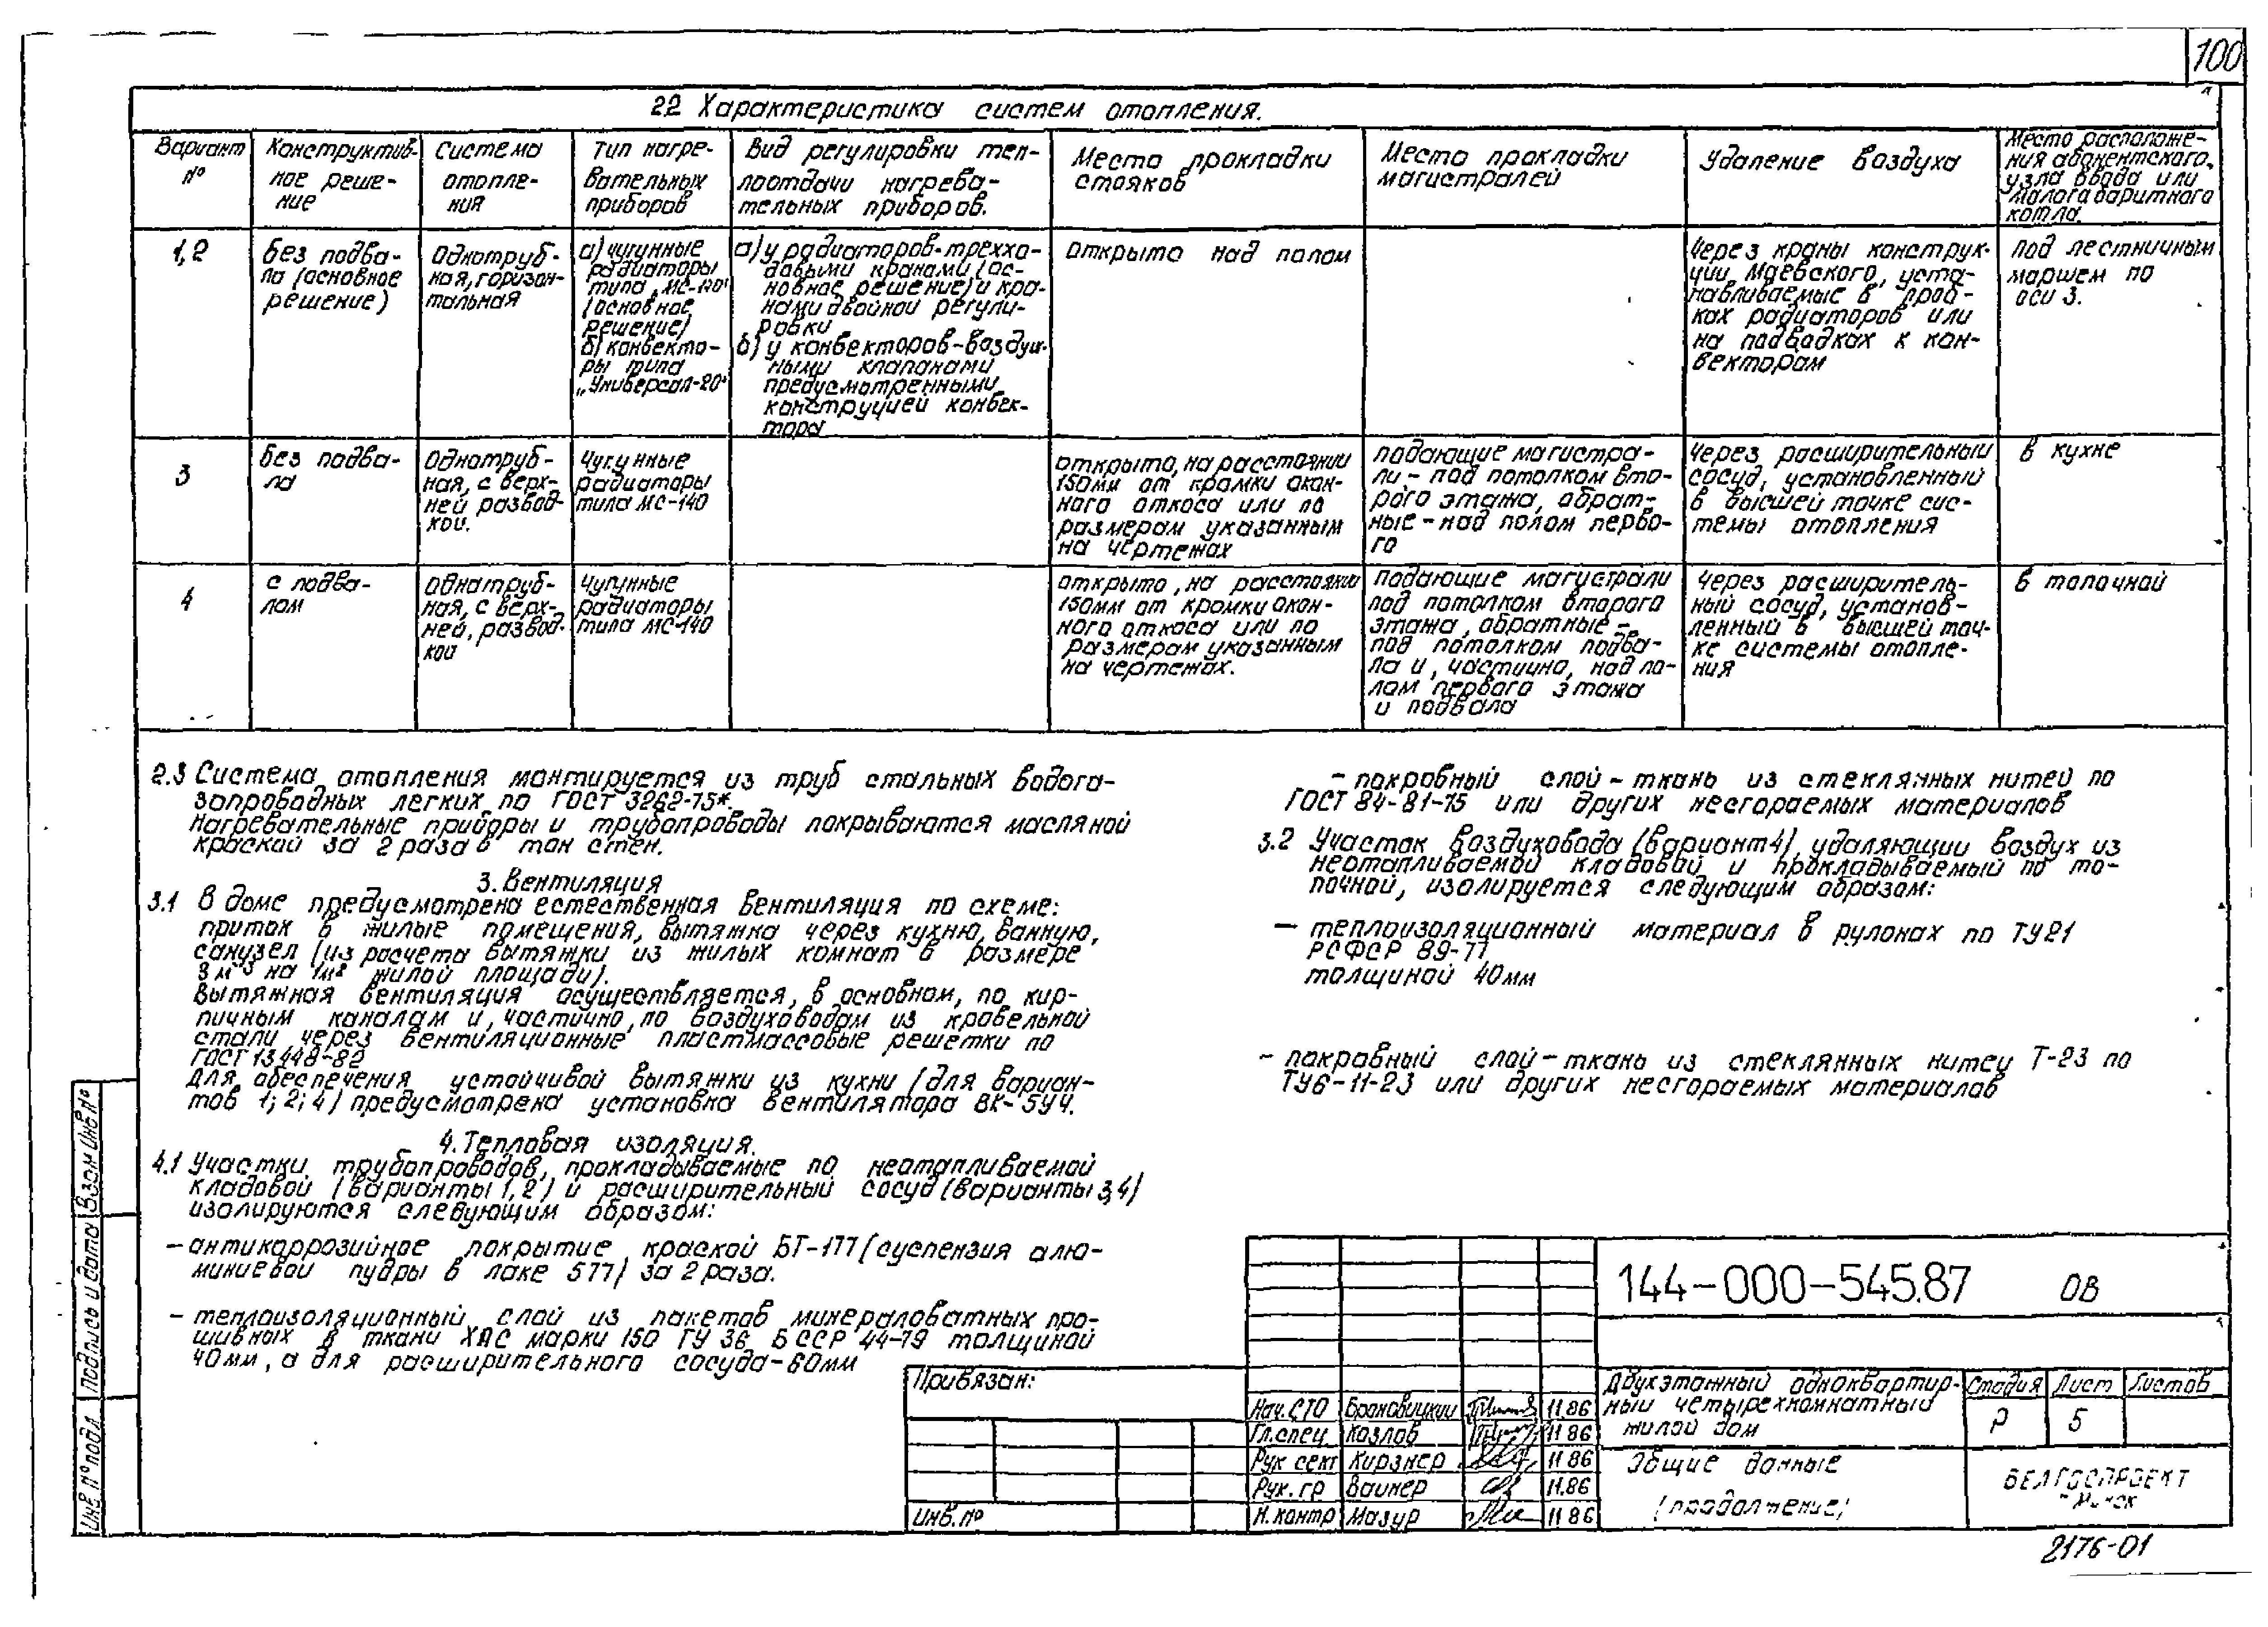 100
22 Характеристика систем отопления.
Вариант
№
Конструктив-
ное реше-
ние
Система
отопле-
ния
Тип нагре-
вательных
приборов
Вид регулировки теп-
лоотдачи нагрева-
тельных приборов.
Место прокладки
стояков
Место прокладки
магистралей
Удаление воздуха
Место расположе-
ния абонентского
узла ввода или
малогабаритного
котла.
1,2
без подва-
ла (основное
решение)
Однотруб-
ная, горизон-
тальная
а) чугунные
радиаторы
типа „МС-140"
(основное
решение)
б) конвекто-
ры типа
„Универсал-20"
а) у радиаторов-треххо-
довыми кранами (ос-
новное решение) и кра-
нами двойной регули-
ровки
б) у конвекторов-воздуш-
ными клапанами
предусмотренными
конструкцией конвек-
тора
открыто над полом
Через краны конструк-
ции Маевского, уста-
навливаемые в проб-
ках радиаторов или
на подводках к кон-
векторам
под лестничным
маршем по
оси 3.
3
без подва-
ла
Однотруб-
ная, с верх-
ней развод-
кой.
Чугунные
радиаторы
типа МС-140
открыто, на расстоянии
150мм от кромки окон-
ного откоса или по
размерам указанным
на чертежах
подающие магистра-
ли - под потолком вто-
рого этажа, обрат-
ные - над полом перво-
го
Через расширительный
сосуд, установленный
в высшей точке сис-
темы отопления
в кухне
4
с подва-
лом
Однотруб-
ная, с верх-
ней, развод-
кой
Чугунные
радиаторы
типа МС-140
открыто, на расстоянии
150мм от кромки окон-
ного откоса или по
размерам указанным
на чертежах.
подающие магистрали
под потолком второго
этажа, обратные -
под потолком подва-
ла и, частично, над по-
лом первого этажа
и подвала
Через расширитель-
ный сосуд, установ-
ленный в высшей точ-
ке системы отопле-
ния
в топочной
2.3 Система отопления монтируется из труб стальных водога-
зопроводных легких по ГОСТ 3262-75*.
Нагревательные приборы и трубопроводы покрываются масляной
краской за 2 раза в тон стен.
3. Вентиляция
3.1 В доме предусмотрена естественная вентиляция по схеме:
приток в жилые помещения, вытяжка через кухню, ванную,
санузел (из расчета вытяжки из жилых комнат в размере
3 м³ на 1м² жилой площади).
Вытяжная вентиляция осуществляется, в основном, по кир-
пичным каналам и, частично, по воздуховодам из кровельной
стали через вентиляционные пластмассовые решетки по
ГОСТ 13448-82
для обеспечения устойчивой вытяжки из кухни (для вариан-
тов 1; 2; 4) предусмотрена установка вентилятора ВК-5У4.
4. Тепловая изоляция.
4.1 Участки трубопроводов, прокладываемые по неотапливаемой
кладовой (варианты 1,2) и расширительный сосуд (варианты 3,4)
изолируются следующим образом:
- антикоррозийное покрытие краской БТ-177 (суспензия алю-
миниевой пудры в лаке 577) за 2 раза.
- теплоизоляционный слой из пакетов минераловатных про-
шивных в ткани ХПС марки 150 ТУ 36 БССР 44-79 толщиной
40мм, а для расширительного сосуда-60мм
- покровный слой - ткань из стеклянных нитей по
ГОСТ 84-81-75 или других несгораемых материалов
3.2 Участок воздуховода (вариант4), удаляющий воздух из
неотапливаемой кладовой и прокладываемый по то-
почной, изолируется следующим образом:
- теплоизоляционный материал в рулонах по ТУ21
РСФСР 89-77
толщиной 40мм
- покровный слой - ткань из стеклянных нитей Т-23 по
ТУ6-11-23 или других несгораемых материалов
Инв. № подл. Подпись и дата Взам Инв №
Привязан:
Инв. №
144-000-545.87 ОВ
Нач. СТО Брановицкий 11.86
Гл.спец Козлов 11 86
Рук сект Кирзнер 11 86
Рук. гр Вайнер 11.86
Н.контр Мазур 11 86
Двухэтажный одноквартир-
ный четырехкомнатный
жилой дом
Стадия Лист Листов
Р 5
Общие данные
(продолжение)
БЕЛГОСПРОЕКТ
г Минск
2176-01